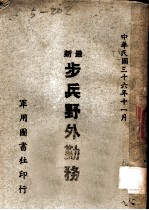 5-202
中華民國三十六年十一月
最新
步兵野外勤務
軍用圖書社印行